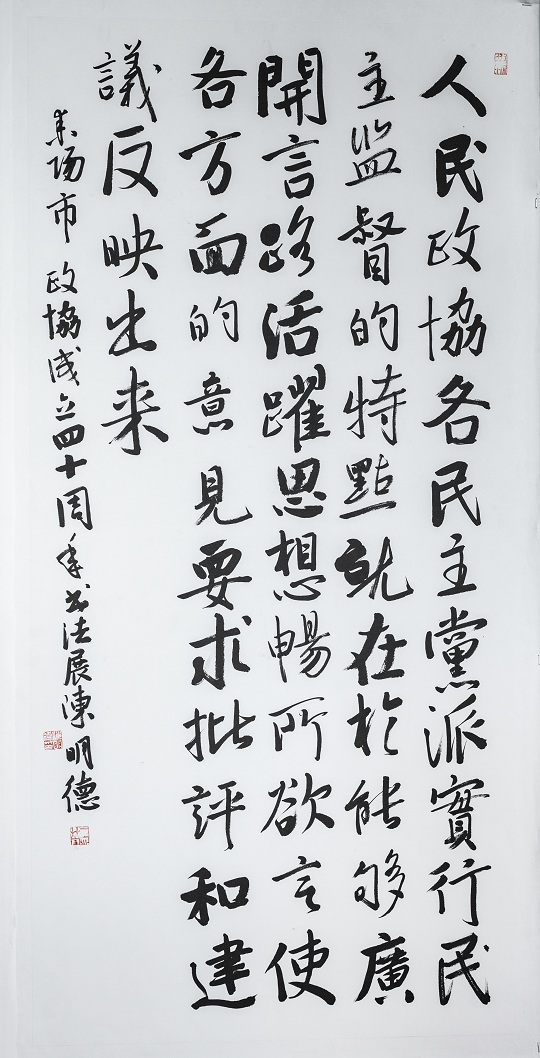 人民政協各民主黨派實行民
主监督的特點就在於能够廣
開言路活躍思想暢所欲言使
各方面的意見要求批評和建
議反映出来
耒陽市政協成立四十周年书法展陳明德